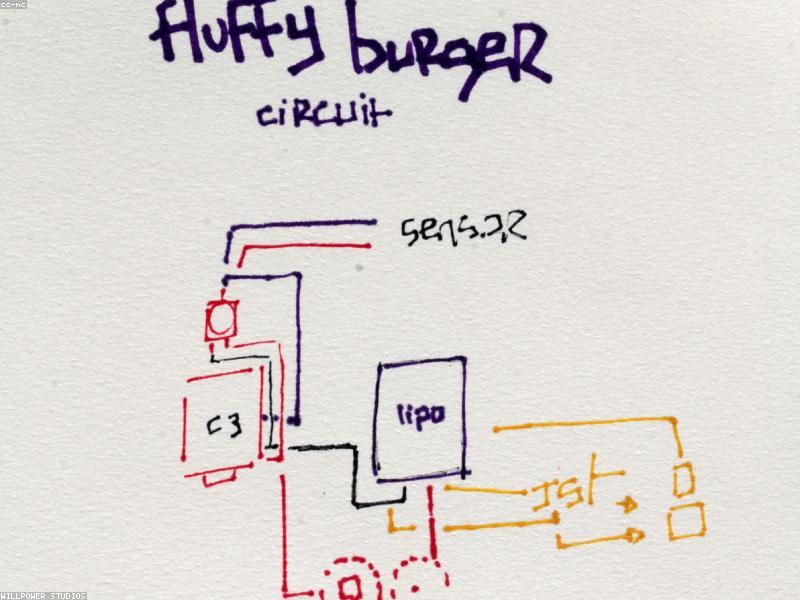 cc-nc
fluffy burger
circuit
sensor
c3
lipo
JSt
WILLPOWER STUDIOS